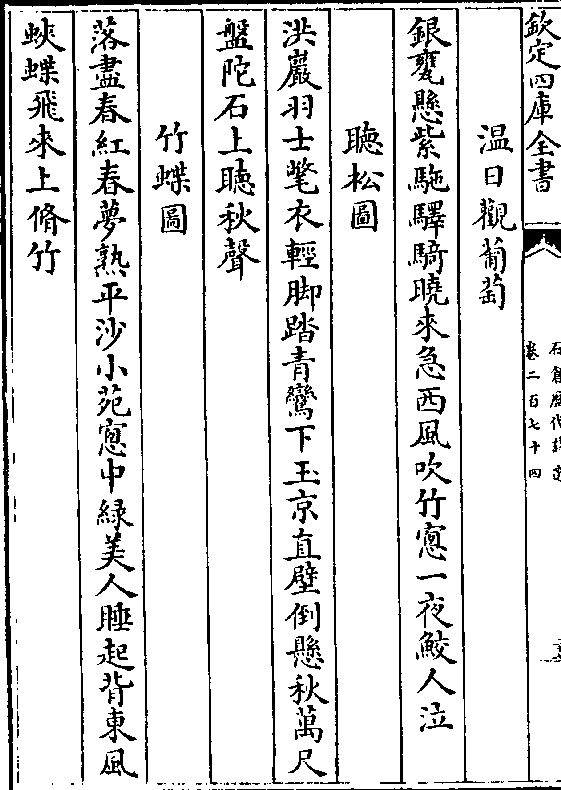 欽定四庫全書
石倉歷代詩選
卷二百七十四
温日觀葡萄
銀甕懸紫駞驛騎曉來急西風吹竹窻一夜鮫人泣
聽松圖
洪巖羽士氅衣輕脚踏青鸞下玉京直壁倒懸秋萬尺
盤陀石上聽秋聲
竹蝶圖
落盡春紅春夢熟平沙小苑窻中緑美人睡起背東風
蛺蝶飛來上脩竹